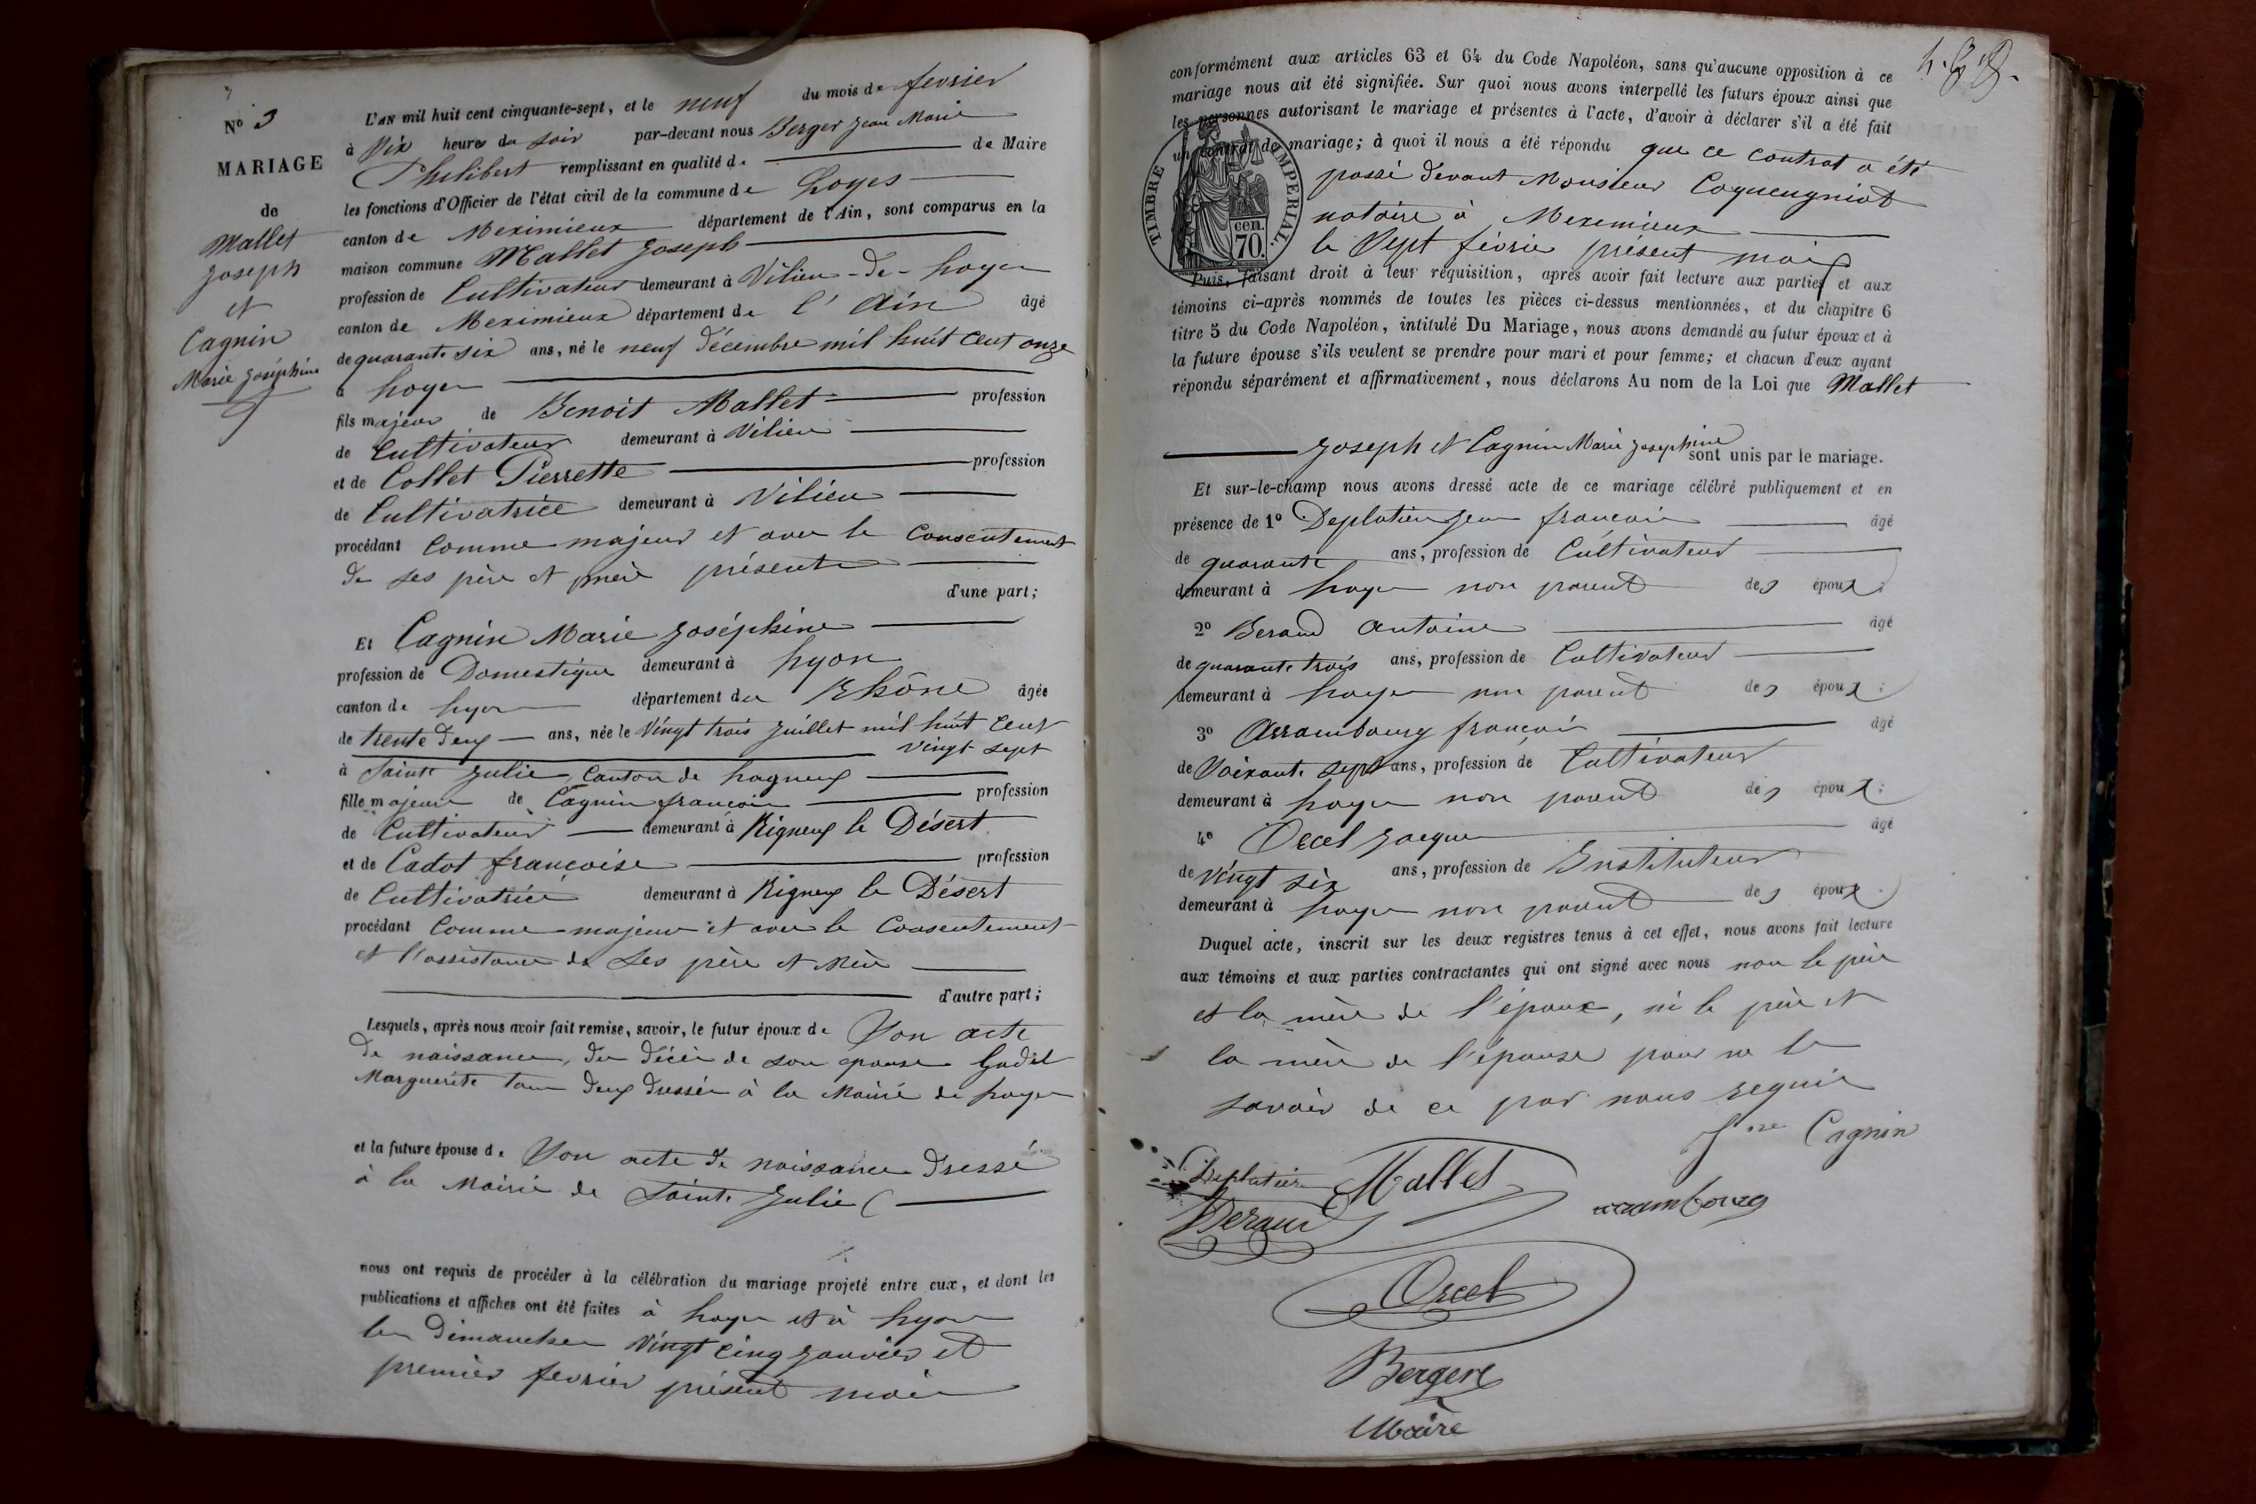 Nº 3
MARIAGE
de
Mallet
Joseph
et
Cagnin
Marie Joséphine
L'AN mil huit cent cinquante-sept, et le neuf du mois de fevrier
à Dix heures du soir par-devant nous Berger Jean Marie
Philibert remplissant en qualité de de Maire
les fonctions d'Officier de l'état civil de la commune de Loyes
canton de Meximieux département de l'Ain, sont comparus en la
maison commune Mallet Joseph
profession de Cultivateur demeurant à Vilieu-de-Loyes
canton de Meximieux département de l'Ain âgé
de quarante six ans, né le neuf décembre mil huit cent onze
à Loyes
fils majeur de Benoit Mallet profession
de Cultivateur demeurant à Vilieu
et de Collet Pierrette profession
de Cultivatrice demeurant à Vilieu
procédant comme majeur et avec le consentement
de ses père et mère présents
d'une part;
Et Cagnin Marie Joséphine
profession de Domestique demeurant à Lyon
canton de Lyon département du Rhône âgée
de trente deux ans, née le Vingt trois Juillet mil huit cent
vingt sept
à Sainte Julie, Canton de Lagneux
fille majeure de Cagnin françois profession
de Cultivateur demeurant à Rigneux le Désert
et de Cadot françoise profession
de Cultivatrice demeurant à Rigneux le Désert
procédant comme majeure et avec le Consentement
et l'assistance de ses père et mère
d'autre part;
Lesquels, après nous avoir fait remise, savoir, le futur époux de Son acte
de naissance, du décès de son épouse
Marguerite tous deux dressés à la Mairie de Loyes
et la future épouse de Son acte de naissance dressé
à la Mairie de Sainte Julie
nous ont requis de procéder à la célébration du mariage projeté entre eux, et dont les
publications et affiches ont été faites à Loyes et à Lyon
les dimanches Vingt cinq Janvier et
premier fevrier présent mois
conformément aux articles 63 et 64 du Code Napoléon, sans qu'aucune opposition à ce
mariage nous ait été signifiée. Sur quoi nous avons interpellé les futurs époux ainsi que
les personnes autorisant le mariage et présentes à l'acte, d'avoir à déclarer s'il a été fait
un contrat de mariage; à quoi il nous a été répondu que ce contrat a été
passé devant Monsieur Coqueugniot
notaire à Meximieux
le Sept février présent mois
TIMBRE IMPERIAL.
cen.
70.
Puis, faisant droit à leur réquisition, après avoir fait lecture aux parties et aux
témoins ci-après nommés de toutes les pièces ci-dessus mentionnées, et du chapitre 6
titre 5 du Code Napoléon, intitulé Du Mariage, nous avons demandé au futur époux et à
la future épouse s'ils veulent se prendre pour mari et pour femme; et chacun d'eux ayant
répondu séparément et affirmativement, nous déclarons Au nom de la Loi que Mallet
Joseph et Cagnin Marie Josephine sont unis par le mariage.
Et sur-le-champ nous avons dressé acte de ce mariage célébré publiquement et en
présence de 1º Deplatier Jean françois âgé
de quarante ans, profession de Cultivateur
demeurant à Loyes non parent des époux;
2º Beraud Antoine âgé
de quarante trois ans, profession de Cultivateur
demeurant à Loyes non parent des époux;
3º Arrambourg françois âgé
de Soixante sept ans, profession de Cultivateur
demeurant à Loyes non parent des époux;
4º Orcel Jacques âgé
de Vingt six ans, profession de Instituteur
demeurant à Loyes non parent des époux.
Duquel acte, inscrit sur les deux registres tenus à cet effet, nous avons fait lecture
aux témoins et aux parties contractantes qui ont signé avec nous non le père
et la mère de l'époux, ni le père et
la mère de l'épouse pour ne le
savoir de ce par nous requis
Cagnin
Deplatier Mallet
Beraud arrambourg
Orcel
Berger
Maire